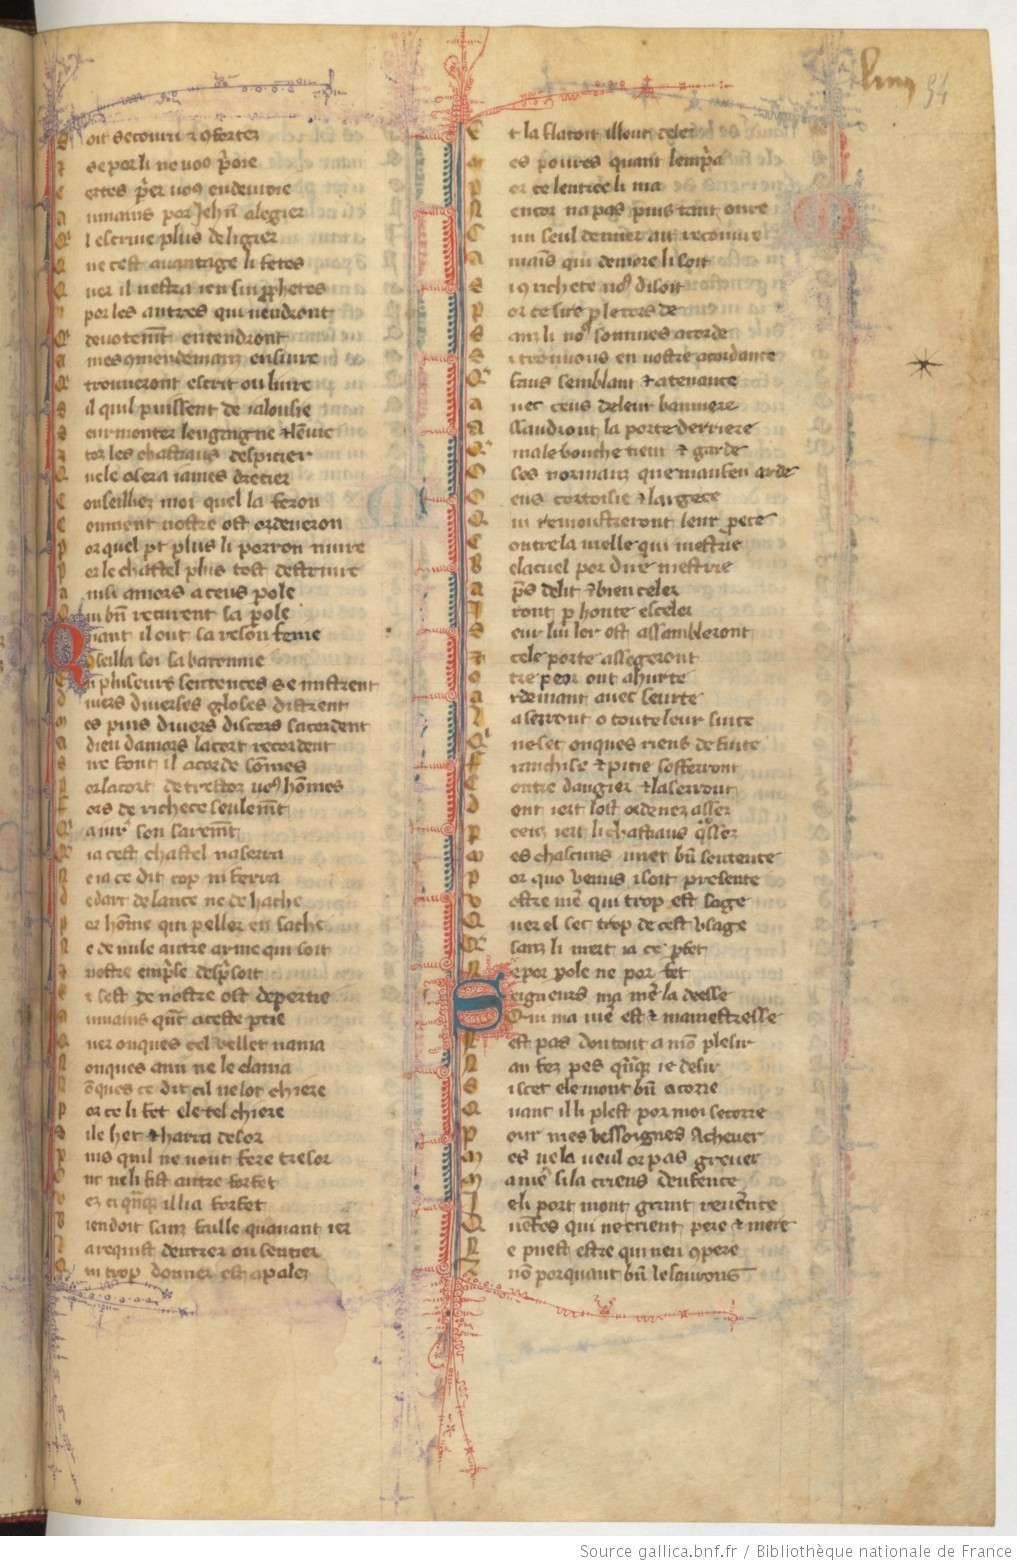 S oit secouru & 9fortez
& se por li ne vos p̃oie
C ertes p̃er vo9 en devroie
A u mains por Jehñ alegier
Q l escrive plus de ligier
Q ue cest avantage li fetes
C ar il nestra ien sui ꝓphetes
por les autres qui vendront
Q devotem̃t entendront
A mes 9mendemanz ensivre
Q trouveront escrit ou livre
S il quil puissent de ialousie
S eurmonter lengaigne & lẽvie
& toz les chastiaus despiecier
Q uele osera iames drecier
C onseilliez moi quel la feron
C omment nostre ost ordeneron
P or quel pt plus li porron nuire
P or le chastel plus tost destruire
A insi amors a ceus pole
Q ui bñ recurent sa pole
Quant il out sa reson fenie
C onseilla soi la baronnie
E n pluseurs sentences se mistrent
D ivers diverses gloses distrent
M es puis divers discors sacordent
A dieu damors lacort recordent
S ire font il acorde sõmes
P or lacort de trestoz no9 hõmes
F ors de richece seulem̃t
Q a iure son sarem̃t
Q ia cest chastel nasserra
N e ia ce dit cop ni ferra
D e dart de lance ne de hache
P or hõme qui parler en sache
N e de nule autre arme qui soit
& nostre emp̃se desp̃soit
E i sest de nostre ost departie
A u mains qñt a ceste ptie
C ar onques cel vellet nama
N onques ami ne le clama
õques ce dit cil ne lot chiere
P or ce li fet ele tel chiere
S i le het & harra desor
P uis quil ne vout fere tresor
O nc ne li fist autre forfet
V ez ci qñque il li a forfet
B ien doit sanz faille quavant ier
L a requist dentrer ou sentier
Q ui trop donner est apalez
E t la flatoit illout celer
M es povres quant lemp̃a
P or ce lentree li vea
N encor na pas puis tant ovre
C un seul denier ait recovre
A u mais qui demore li soit
S i 9 richece no9 disoit
P or ce sire ꝑ le cors de
S anz li no9 sommes acorde
S i trouvons en nostre acordance
Q faus semblant & atenance
A vec ceus de leur banniere
A ssaudront la porte derriere
Q male bouche tient & garde
O ses normanz que maufeu arde
O eus cortoisie & largece
Q ui remoustreront leur ꝓece
C ontre la vielle qui mestrie
B elacuel por dure mestrie
A p̃s delit & bien celer
I ront ꝑ honte esceler
S eur lui lor ost assambleront
& cele porte assegeront
O tre peor ont ahurte
A rdemant avec seurte
L a serront o toute leur suite
Q ne set onques riens de fuite
F ranchise & pitie sofferront
C ontre dangier & lasserront
D ont iert lost ordenez assez
P ceus iert li chastiaus q̃ssez
M es chascuns i met bñ sentente
P or quo venus i soit presente
V ostre mẽ qui trop est sage
Q uer el set trop de cest usage
Q sanz li niert ia ce p̃fet
N e por pole ne por fet
Seigneurs ma mẽ la deesse
Qui ma me est & ma mestresse
N est pas dou tout a mõ plesir
N an fez pes qñque ie desir
S i scet ele mont bñ acorre
Q uant il li plest por moi secorre
P our mes bessoignes achever
M es ne la veul or pas grever
M a mẽ si la criens denfence
J e li port mont grant reverẽce
Q uẽfes qui ne crient pere & mere
N e puest estre qui neu 9pere
& nõ porquant bñ le savrons